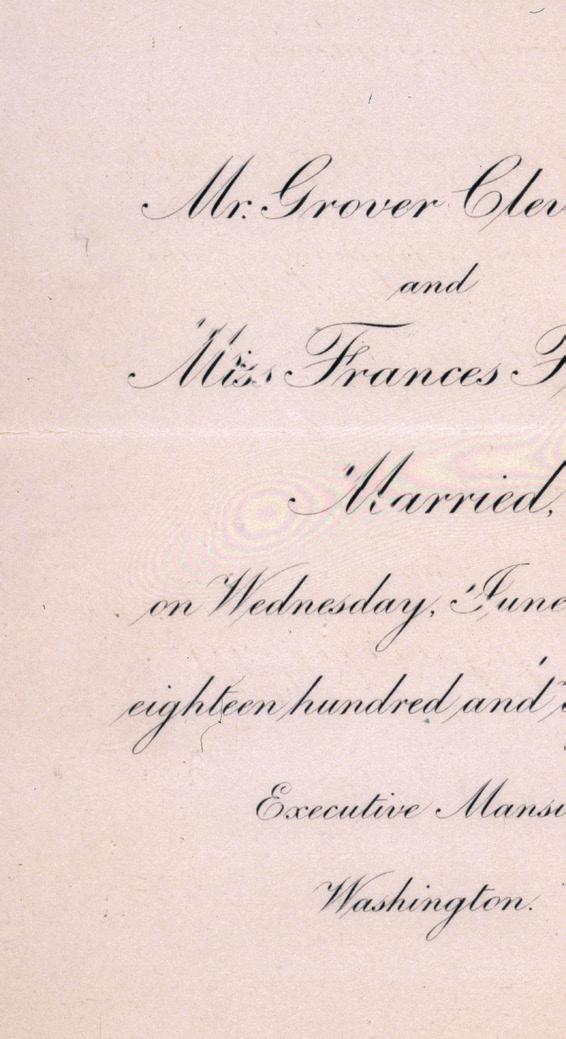 Mr. Grover Clev
and
Miss Frances F
Married,
on Wednesday, June
eighteen hundred and
Executive Mansi
Washington.